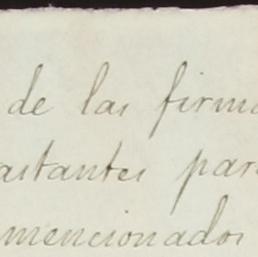 de las firma
astantes par
mencionados